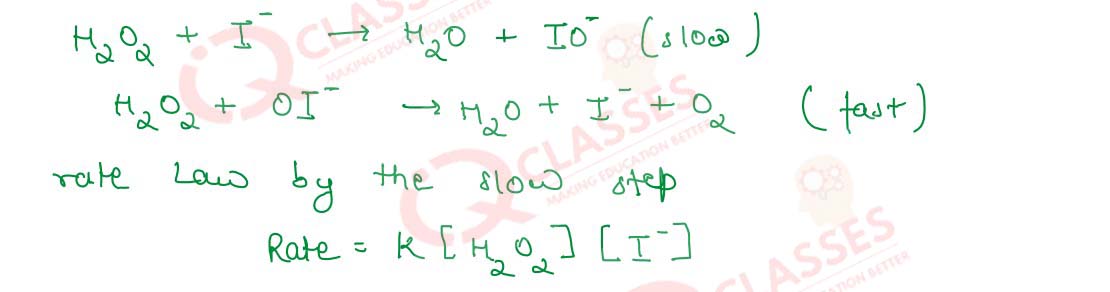 H₂O₂ + I⁻ → H₂O + IO⁻ (slow)
H₂O₂ + OI⁻ → H₂O + I⁻ + O₂ (fast)
rate Law by the slow step
Rate = K [H₂O₂] [I⁻]
CLASSES
MAKING EDUCATION BETTER
CLASSES
MAKING EDUCATION BETTER
CLASSES